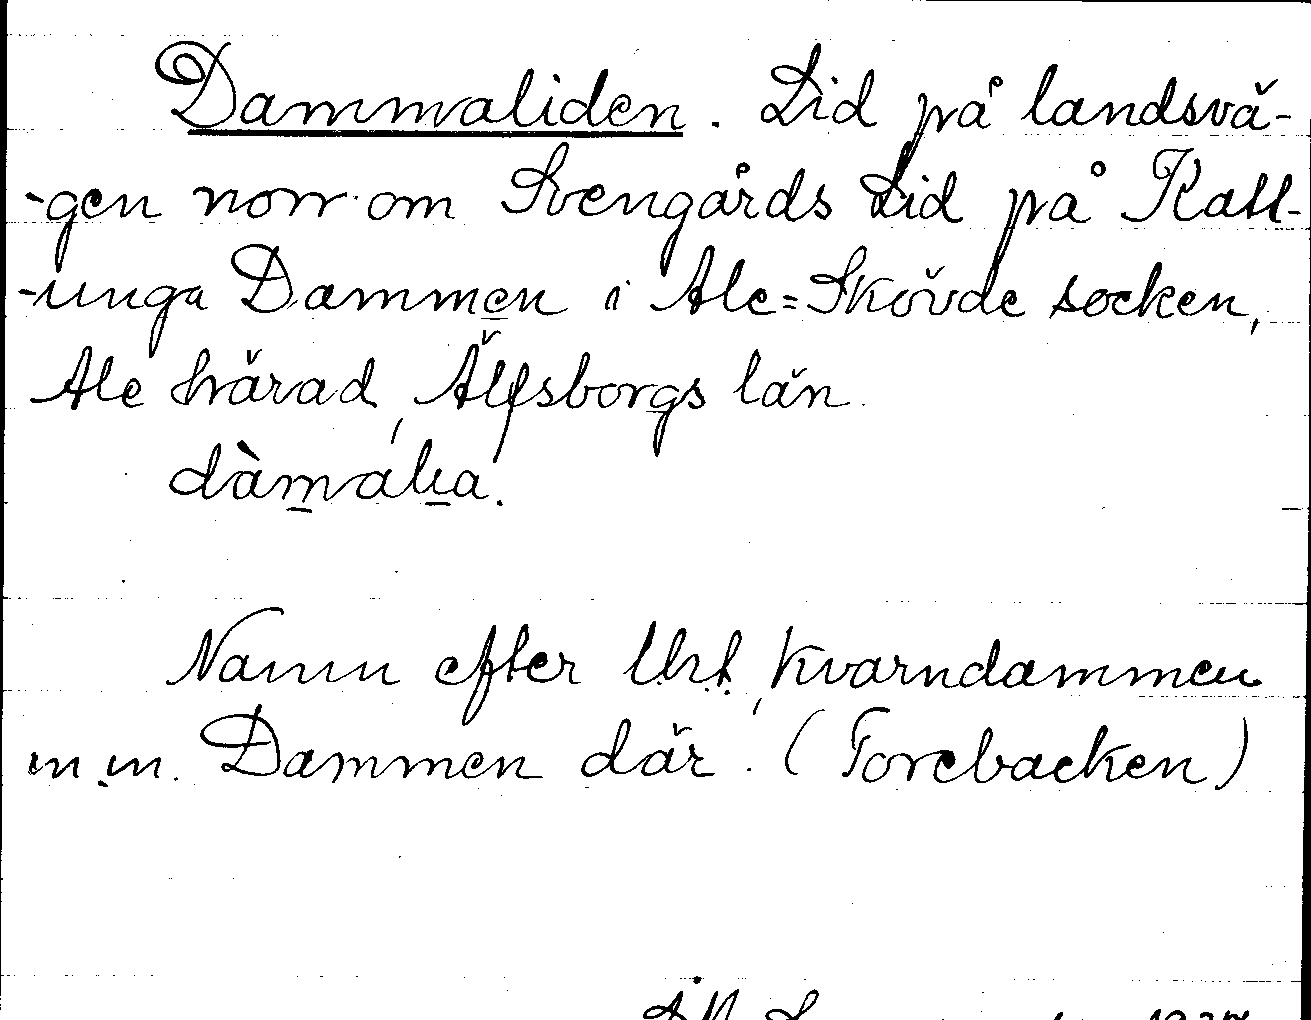 Dammaliden. Lid på landsvä-
-gen norr om Svengårds Lid på Katt-
-unga Dammen i Ale=Skövde socken,
Ale härad, Älfsborgs län.
dàmalia.
Namn efter Urt, Kvarndammen
m.m. Dammen där. (Forebacken)